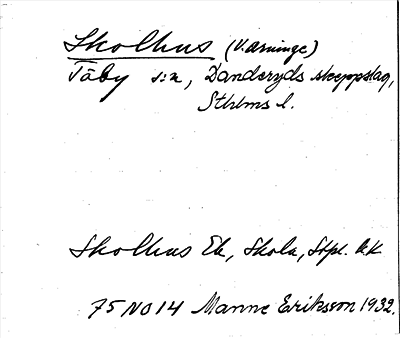 Skolhus (V. Arninge)
Täby sn, Danderyds skeppslag,
Sthlms l.
Skolhus Ek, Skola, Stpl. kk
75 NO 14 Manne Eriksson 1932.